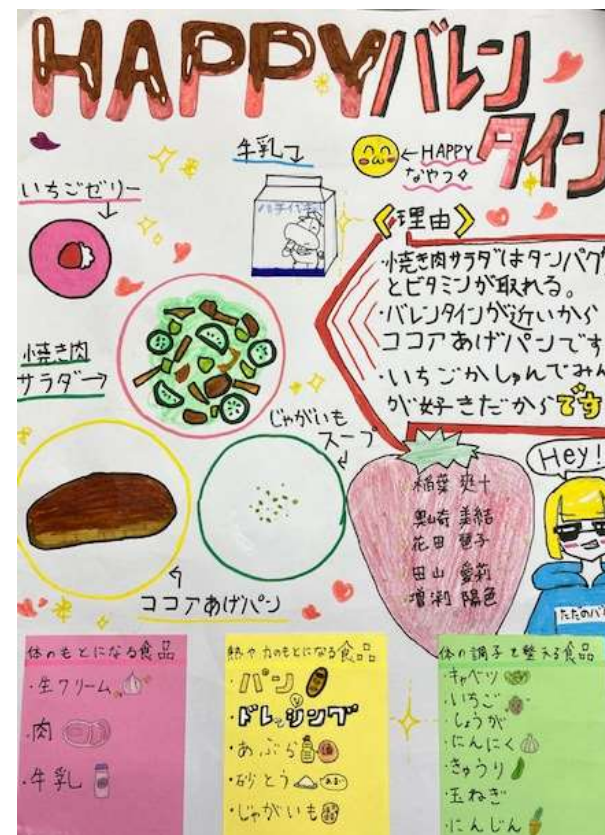 HAPPYバレン
タイン
牛乳
←HAPPY
なやつ
いちごゼリー
《理由》
・焼き肉サラダはタンパク
とビタミンが取れる。
・バレンタインが近いから
ココアあげパンです
・いちごがしゅんでみん
が好きだからです
焼き肉
サラダ→
じゃがいも
スープ
Hey!
稲葉
奥崎 美結
花田
田山 愛莉
陽色
ココアあげパン
ただのバ
体のもとになる食品
・生クリーム
・肉
・牛乳
熱や力のもとになる食品
・パン
・ドレッシング
・あぶら
・砂とう
・じゃがいも
体の調子を整える食品
・キャベツ
・いちご
・しょうが
・にんにく
・きゅうり
・玉ねぎ
・にんじん